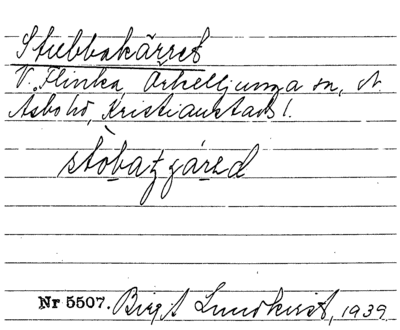 Stubbakärret
V. Flinka, Örkelljunga sn, N.
Åsbo hd, Kristianstads l.
Nr 5507. Birgit Lundkvist, 1939